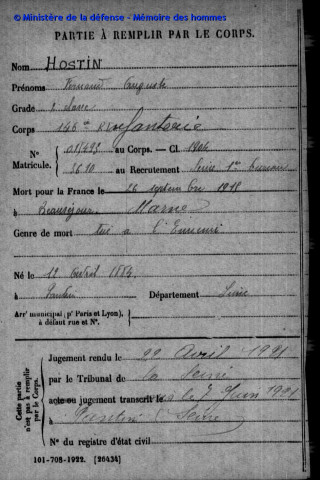 © Ministère de la défense - Mémoire des hommes
PARTIE À REMPLIR PAR LE CORPS.
Nom HOSTIN
Prénoms Fernand Auguste
Grade 2e classe
Corps 146ème Rt d'Infanterie
N° 015492 au Corps. — Cl. 1904
Matricule. 3610 au Recrutement Seine 1er Bureau
Mort pour la France le 26 septembre 1918
à Beauséjour Marne
Genre de mort tué à l'Ennemi
Né le 12 Avril 1884
à Pantin Département Seine
Arrt municipal (pr Paris et Lyon),
à défaut rue et N°.
Cette partie n'est pas à remplir par le Corps.
Jugement rendu le 22 Avril 1921
par le Tribunal de la Seine
acte ou jugement transcrit le 7 Juin 1921
à Pantin (Seine)
N° du registre d'état civil
101-708-1922. [26434]